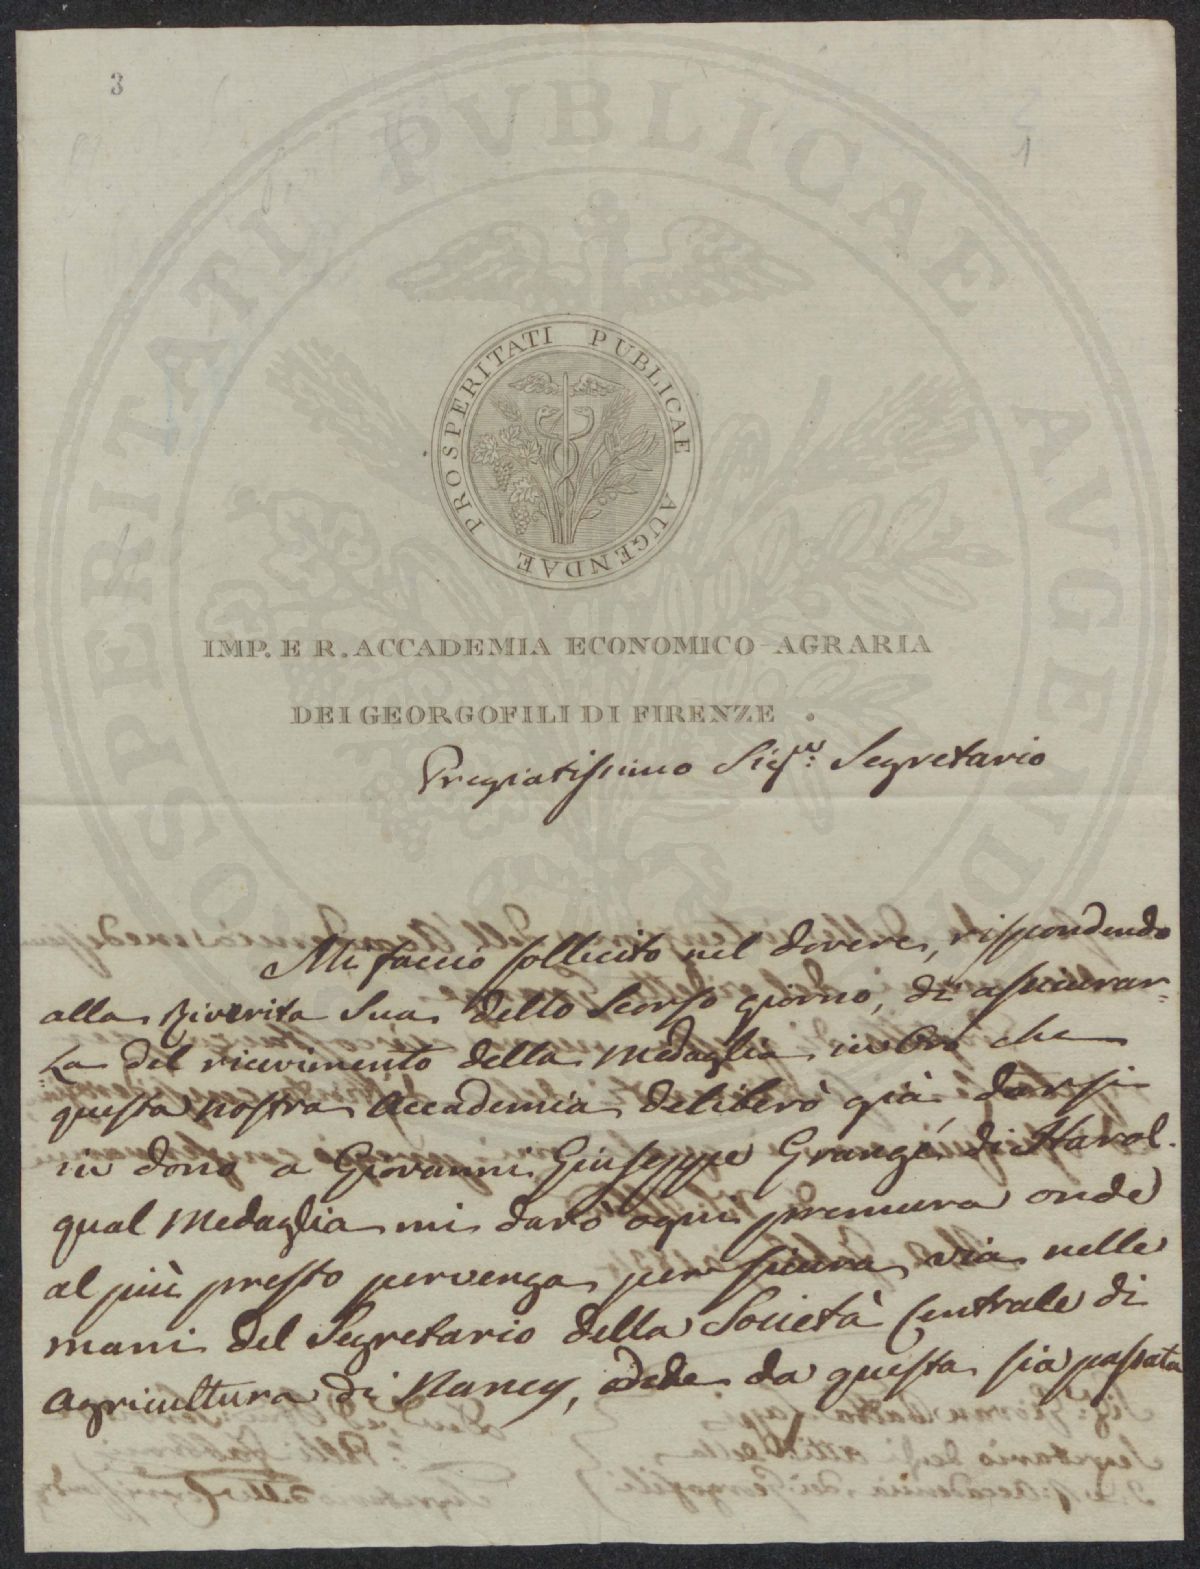 3
2
1
PROSPERITATI PUBLICAE AUGENDAE
IMP. E R. ACCADEMIA ECONOMICO-AGRARIA
DEI GEORGOFILI DI FIRENZE.
Pregiatissimo Sigre: Segretario
Mi faccio sollecito nel dovere, rispondendo
alla Riverita Sua dello Scorso giorno, di assicurar=
=La del ricevimento della Medaglia in che
questa nostra Accademia deliberò già darsi
in dono a Giovanni Giuseppe Grangé di Harol.
qual Medaglia mi darò ogni premura onde
al più presto pervenga per sicura via nelle
mani del Segretario della Società Centrale di
Agricultura di Nancy, da questa sia passata
PROSPERITATI PVBLICAE AVGENDAE